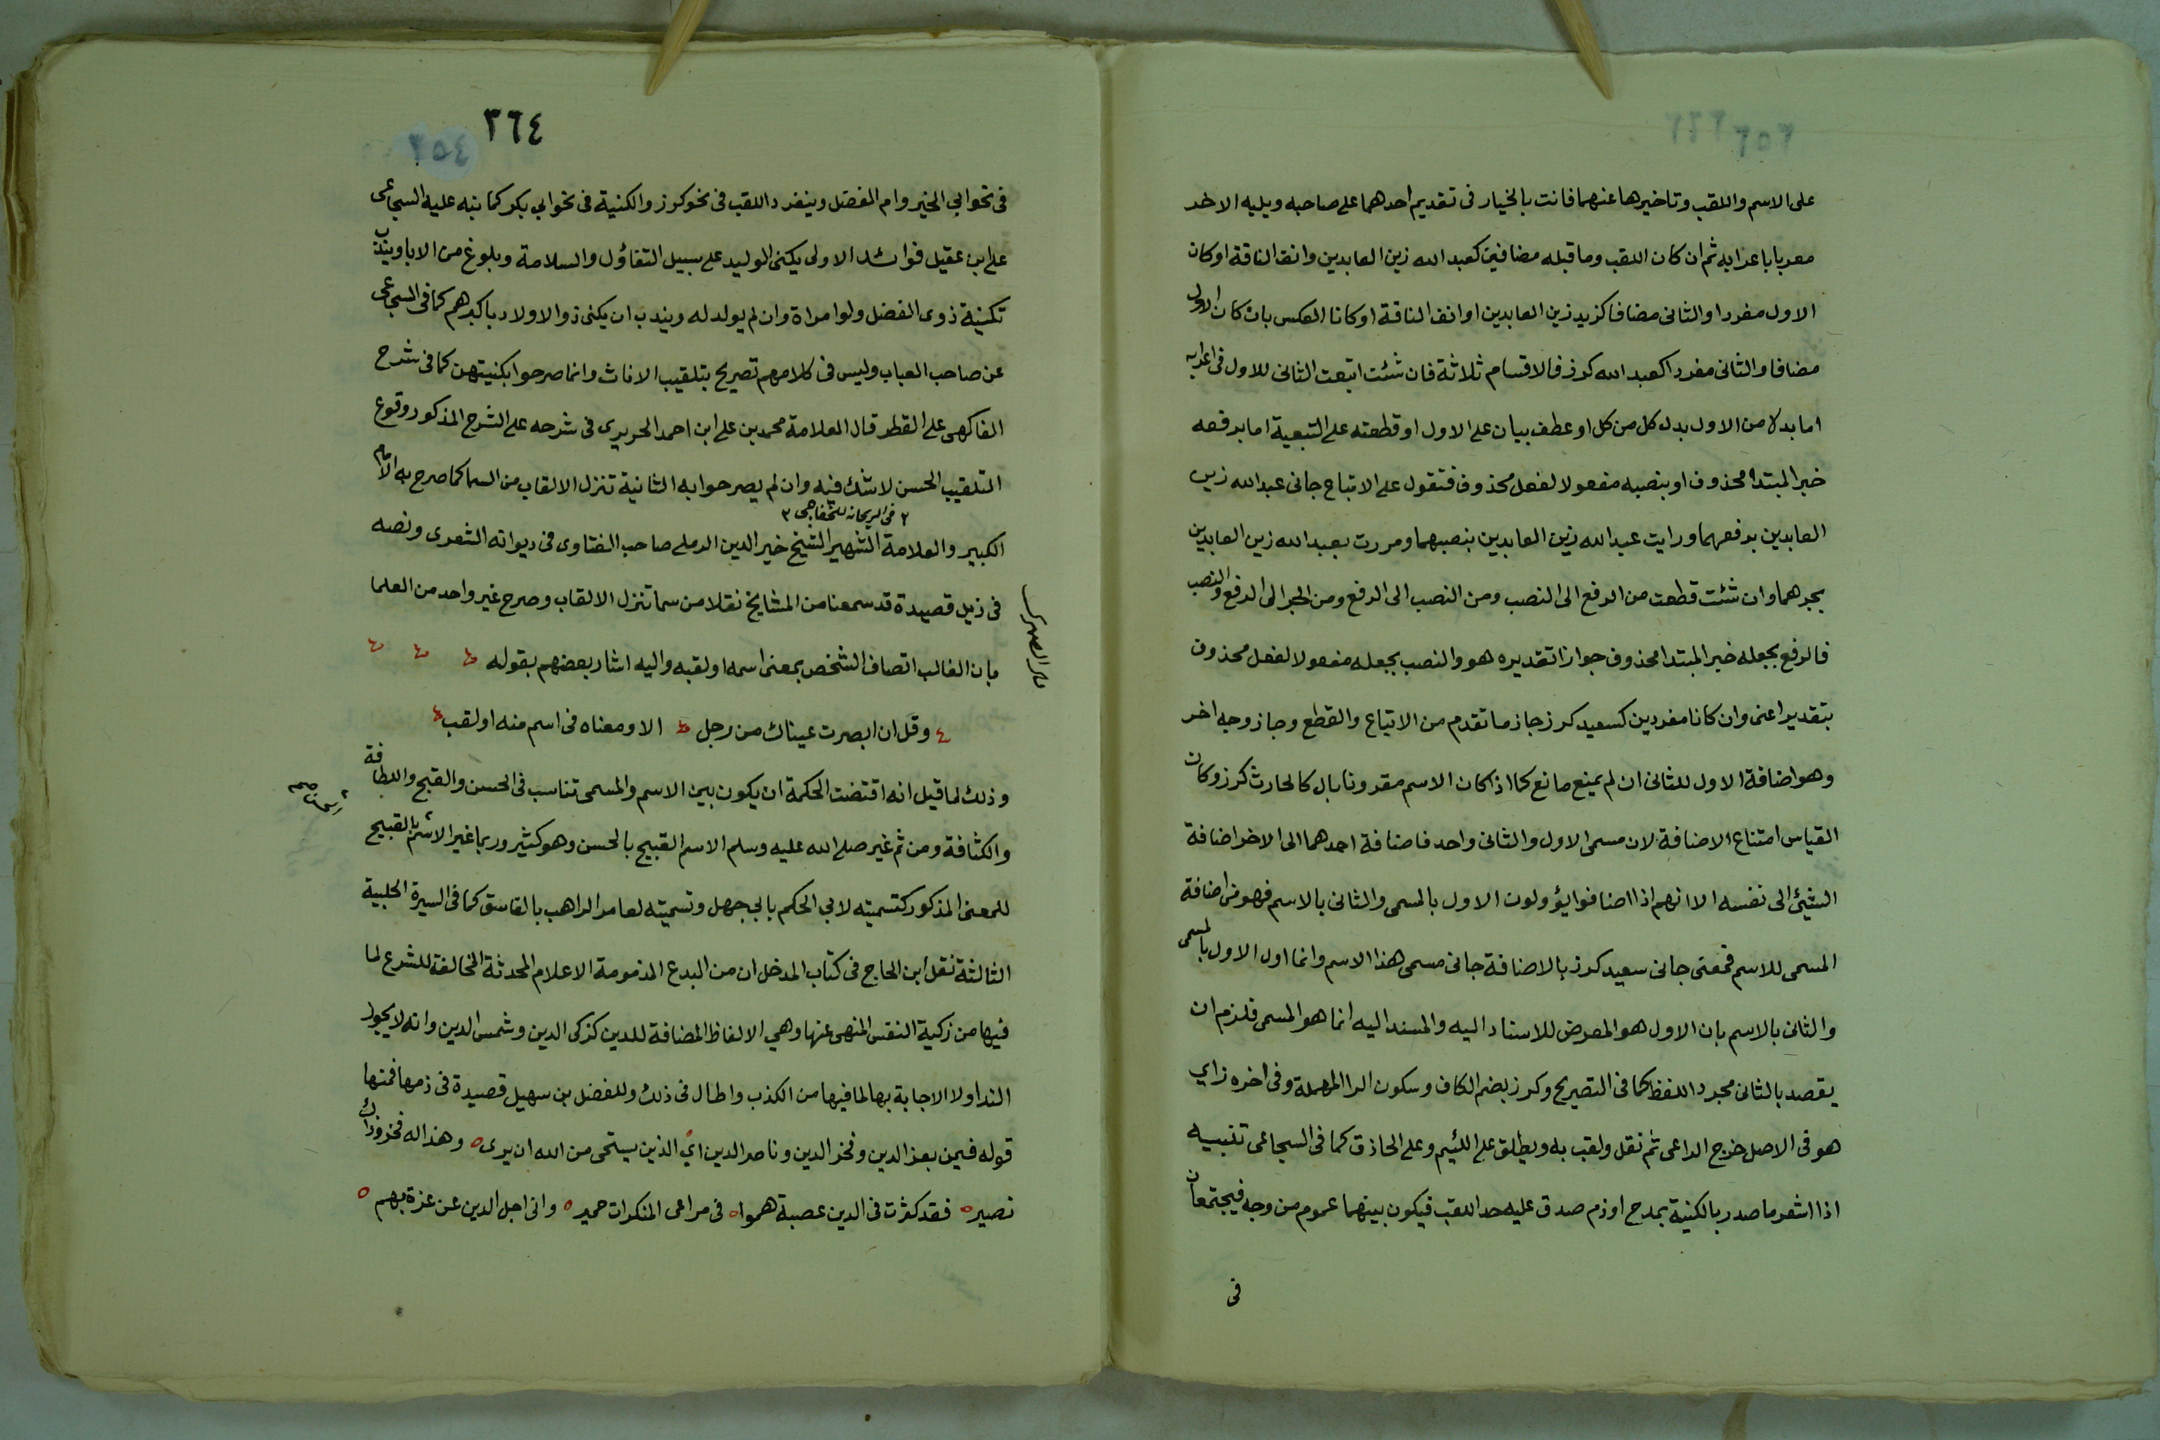 على الاسم واللقب وتاخيرها عنهما فانت بالخيار فى تقديم احدهما على صاحبه ويليه الاخر
معربا باعرابه ثم ان كان اللقب وما قبله مضافين كعبد الله زين العابدين وانف الناقة او كان
الاول مفردا والثانى مضافا كزيد زين العابدين او انف الناقة او كانا العكس بان كان الاول
مضافا والثانى مفردا كعبد الله كرز فالاقسام ثلاثة فان شئت اتبعت الثانى للاول فى اعرابه
اما بدلا من الاول بدل كل من كل او عطف بيان على الاول او قطعته على التبعية اما برفعه
خبر المبتدا محذوف او بنصبه مفعولا لفعل محذوف فتقول على الاتباع جانى عبد الله زين
العابدين برفعهما ورايت عبد الله زين العابدين بنصبهما ومررت بعبد الله زين العابدين
بجرهما وان شئت قطعت من الرفع الى النصب ومن النصب الى الرفع ومن الجر الى الرفع والنصب
فالرفع بجعله خبر المبتدا محذوف جوازا تقديره هو والنصب بجعله مفعولا لفعل محذوف
بتقدير اعنى وان كانا مفردين كسعيد كرز جاز ما تقدم من الاتباع والقطع وجاز وجه اخر
وهو اضافة الاول للثانى ان لم يمنع مانع كما اذا كان الاسم مقرونا بال كالحارث كرز وكان
القياس امتناع الاضافة لان مسمى الاول والثانى واحد فاضافة احدهما الى الاخر اضافة
الشيئ الى نفسه الا انهم اذا اضافوا يؤولون الاول بالمسمى والثانى بالاسم فهو من اضافة
المسمى للاسم فمعنى جانى سعيد كرز بالاضافة جانى مسمى هذا الاسم وانما اول الاول بالمسمى
والثانى بالاسم بان الاول هو المعرض للاسناد اليه والمسند اليه انما هو المسمى فلزم ان
يقصد بالثانى مجرد اللفظ كما فى التصريح وكرز بضم الكاف وسكون الرا المهملة وفى اخره زاي
هو فى الاصل خرج الراعى ثم نقل ولقب به ويطلق على اللئيم وعلى الحاذق كما فى السجاعى تنبيه
اذا اشعر ما صدر بالكنية بمدح او ذم صدق عليه حد اللقب فيكون بينهما عموم من وجه فيجتمعان
فى
٣٦٤
٣٥٤
فى نحو ابي الخير وام الفضل وينفرد اللقب فى نحو كرز والكنية فى نحو ابي بكر كما نبه عليه السجاعى
على ابن عقيل فوائد الاولى يكنى الوليد على سبيل التفاؤل والسلامة وبلوغ من الابا ويندب
تكنية ذوى الفضل ولو امراة وان لم يولد له ويندب ان يكنى ذو الاولاد باكبرهم كما فى السجاعى
عن صاحب العباب وليس فى كلامهم تصريح بتلقيب الاناث وانما صرحوا بكنيتهن كما فى شرح
الفاكهى على القطر قال العلامة محمد بن على ابن احمد الحريرى فى شرحه على الشرح المذكور وقوع
التلقيب الحسن لا شك فيه وان لم يصرحوا به الثانية تنزل الالقاب من السما كما صرح به الامام
٢ فى الريحانة للخفاجى ٢
الكبير والعلامة الشهير الشيخ خير الدين الرملى صاحب الفتاوى فى ديوانه الشعرى ونصه
فى ذيل قصيدة قد سمعنا من المشايخ نقلا من سما تنزل الالقاب وصرح غير واحد من العلما
بان الغالب اتصاف الشخص بمعنى اسمه او لقبه واليه اشار بعضهم بقوله
وقل ان ابصرت عيناك من رجل الا ومعناه فى اسم منه او لقب
وذلك لما قيل انه اقتضت الحكمة ان يكون بين الاسم والمسمى تناسب فى الحسن والقبح واللطافة
والكثافة ومن ثم غير صلى الله عليه وسلم الاسم القبيح بالحسن وهو كثير وربما غير الاسم بالقبيح
للمعنى المذكور كتسميته لابي الحكم بابي جهل وتسميته لعامر الراهب بالفاسق كما فى السيرة الحلبية
الثالثة نقل ابن الحاج فى كتاب المدخل ان من البدع المذمومة الاعلام المحدثة المخالفة للشرع لما
فيها من زكية النفس المنهى عنها وهي الالفاظ المضافة للدين كزكى الدين وشمس الدين وانه لا يجوز
الندا ولا الاجابة بها لما فيها من الكذب واطال فى ذلك وللفضل بن سهيل قصيدة فى ذمها فمنها
قوله فيمن بعز الدين وفخر الدين وناصر الدين اي الذين يستحى من الله ان يرى وهذا له فخر وذاك
نصير فقد كثرت فى الدين عصبة هموا فى مراعى المنكرات حمير وانى اجل الدين عن عزة بهم